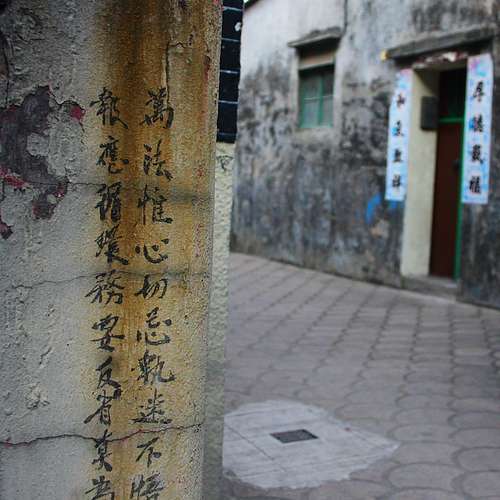 萬法惟心切忌執迷不悟
報應循環務要反省莫為
厚德載福
和氣致祥